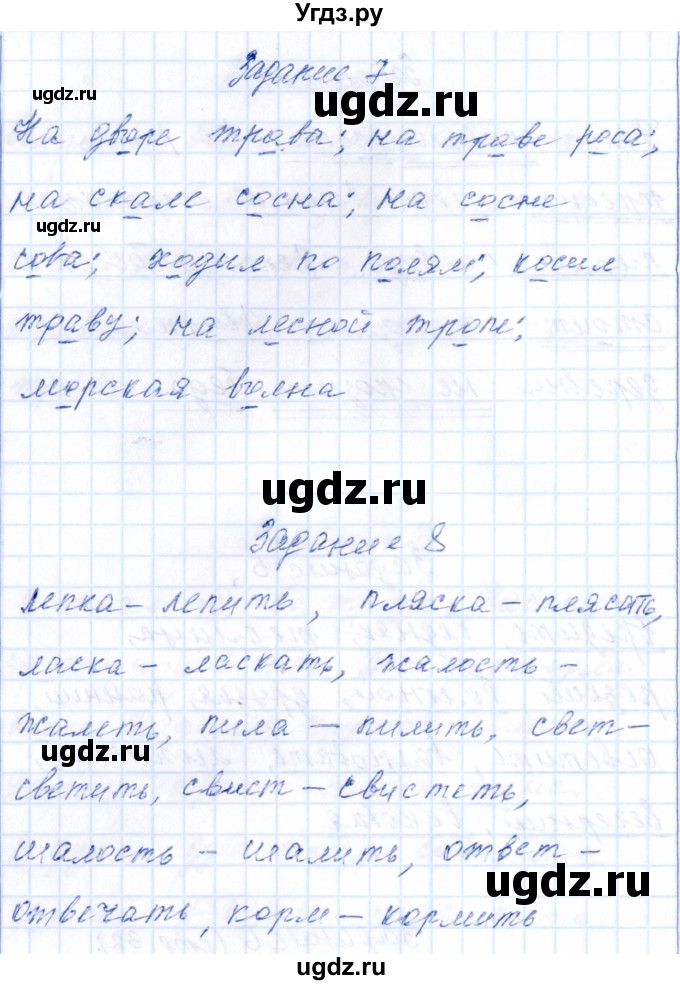 Угдз.ру
Задание 7
На дворе трава; на траве роса;
на скале сосна; на сосне
сова; ходил по полям; косил
траву; на лесной тропе;
морская волна
Задание 8
лепка – лепить, пляска – плясать,
ласка – ласкать, жалость –
жалеть, пила – пилить, свет –
светить, свист – свистеть,
шалость – шалить, ответ –
отвечать, корм – кормить
ugdz.ru
ugdz.ru
ugdz.ru
ugdz.ru
ugdz.ru
ugdz.ru
ugdz.ru
ugdz.ru